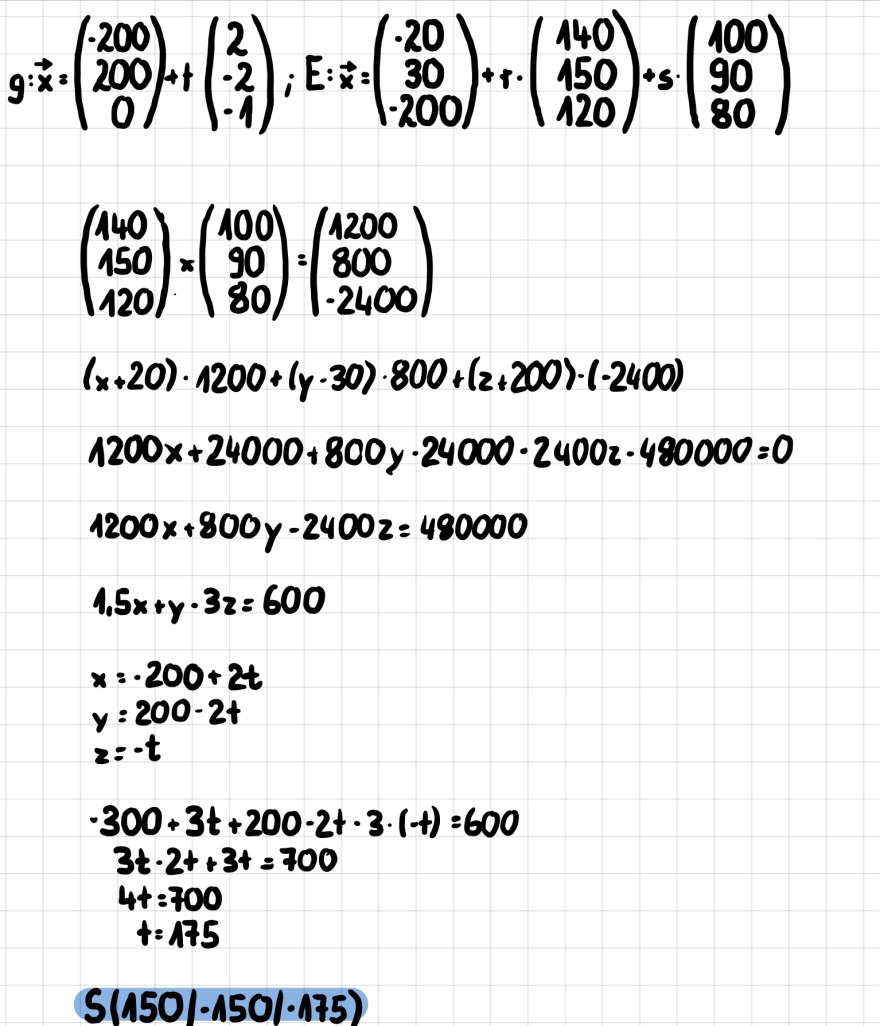 g: x⃗ = (-200 200 0) + t (2 -2 -1) ; E: x⃗ = (-20 30 -200) + r · (140 150 120) + s · (100 90 80)
(140 150 120) × (100 90 80) = (1200 800 -2400)
(x+20) · 1200 + (y-30) · 800 + (z+200) · (-2400)
1200x + 24000 + 800y - 24000 - 2400z - 480000 = 0
1200x + 800y - 2400z = 480000
1,5x + y - 3z = 600
x = -200 + 2t
y = 200 - 2t
z = -t
-300 + 3t + 200 - 2t - 3 · (-t) = 600
3t - 2t + 3t = 700
4t = 700
t = 175
S(150|-150|-175)